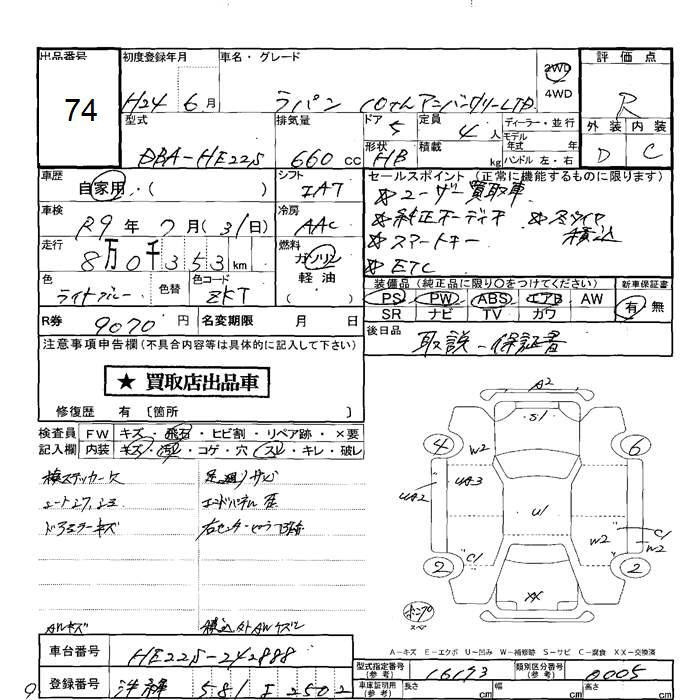 出品番号 初度登録年月 車名・グレード 評価点
74 H24 6月 ラパン 10thアニバーサリーLTD 2WD 4WD R
型式 排気量 ドア 5 定員 4人 ディーラー・並行 外装 内装
DBA-HE22S 660cc 形状 HB 積載 kg モデル年式 年式 ハンドル 左・右 D C
車歴 自家用・( ) シフト IAT セールスポイント (正常に機能するものに限ります)
車検 R9年 7月(31日) 冷房 AAC ☆ユーザー買取車
☆純正オーディオ ☆冬タイヤ積込
走行 8万0千353km 燃料 ガソリン 軽油 ☆スマートキー
☆ETC
色 ライトブルー 色替 色コード ZKT 装備品 (純正品に限り○をつけてください) 新車保証書
PS PW ABS エアB AW 有・無
SR ナビ TV カワ
R券 9070円 名変期限 月 日 後日品 取説-保証書
注意事項申告欄(不具合内容等は具体的に記入して下さい)
★ 買取店出品車
修復歴 有 〔箇所 〕
検査員 FW キズ・飛石・ヒビ割・リペア跡・×要
記入欄 内装 キズ・汚れ・コゲ・穴・スレ・キレ・破レ
足廻りサビ
シートシワ、シミ エンドパネル歪
ドアミラーキズ
A2
S1
4 W2 6
UA2 UA3 U1 W2 C1 W2
C1
2 2
XX
A-キズ E-エクボ U-凹み W-補修跡 S-サビ C-腐食 XX-交換済
車台番号 HE22S-242888 型式指定番号(参考) 16193 類別区分番号(参考) 0005
登録番号 581 車庫証明用(参考) 長さ cm 幅 cm 高さ cm